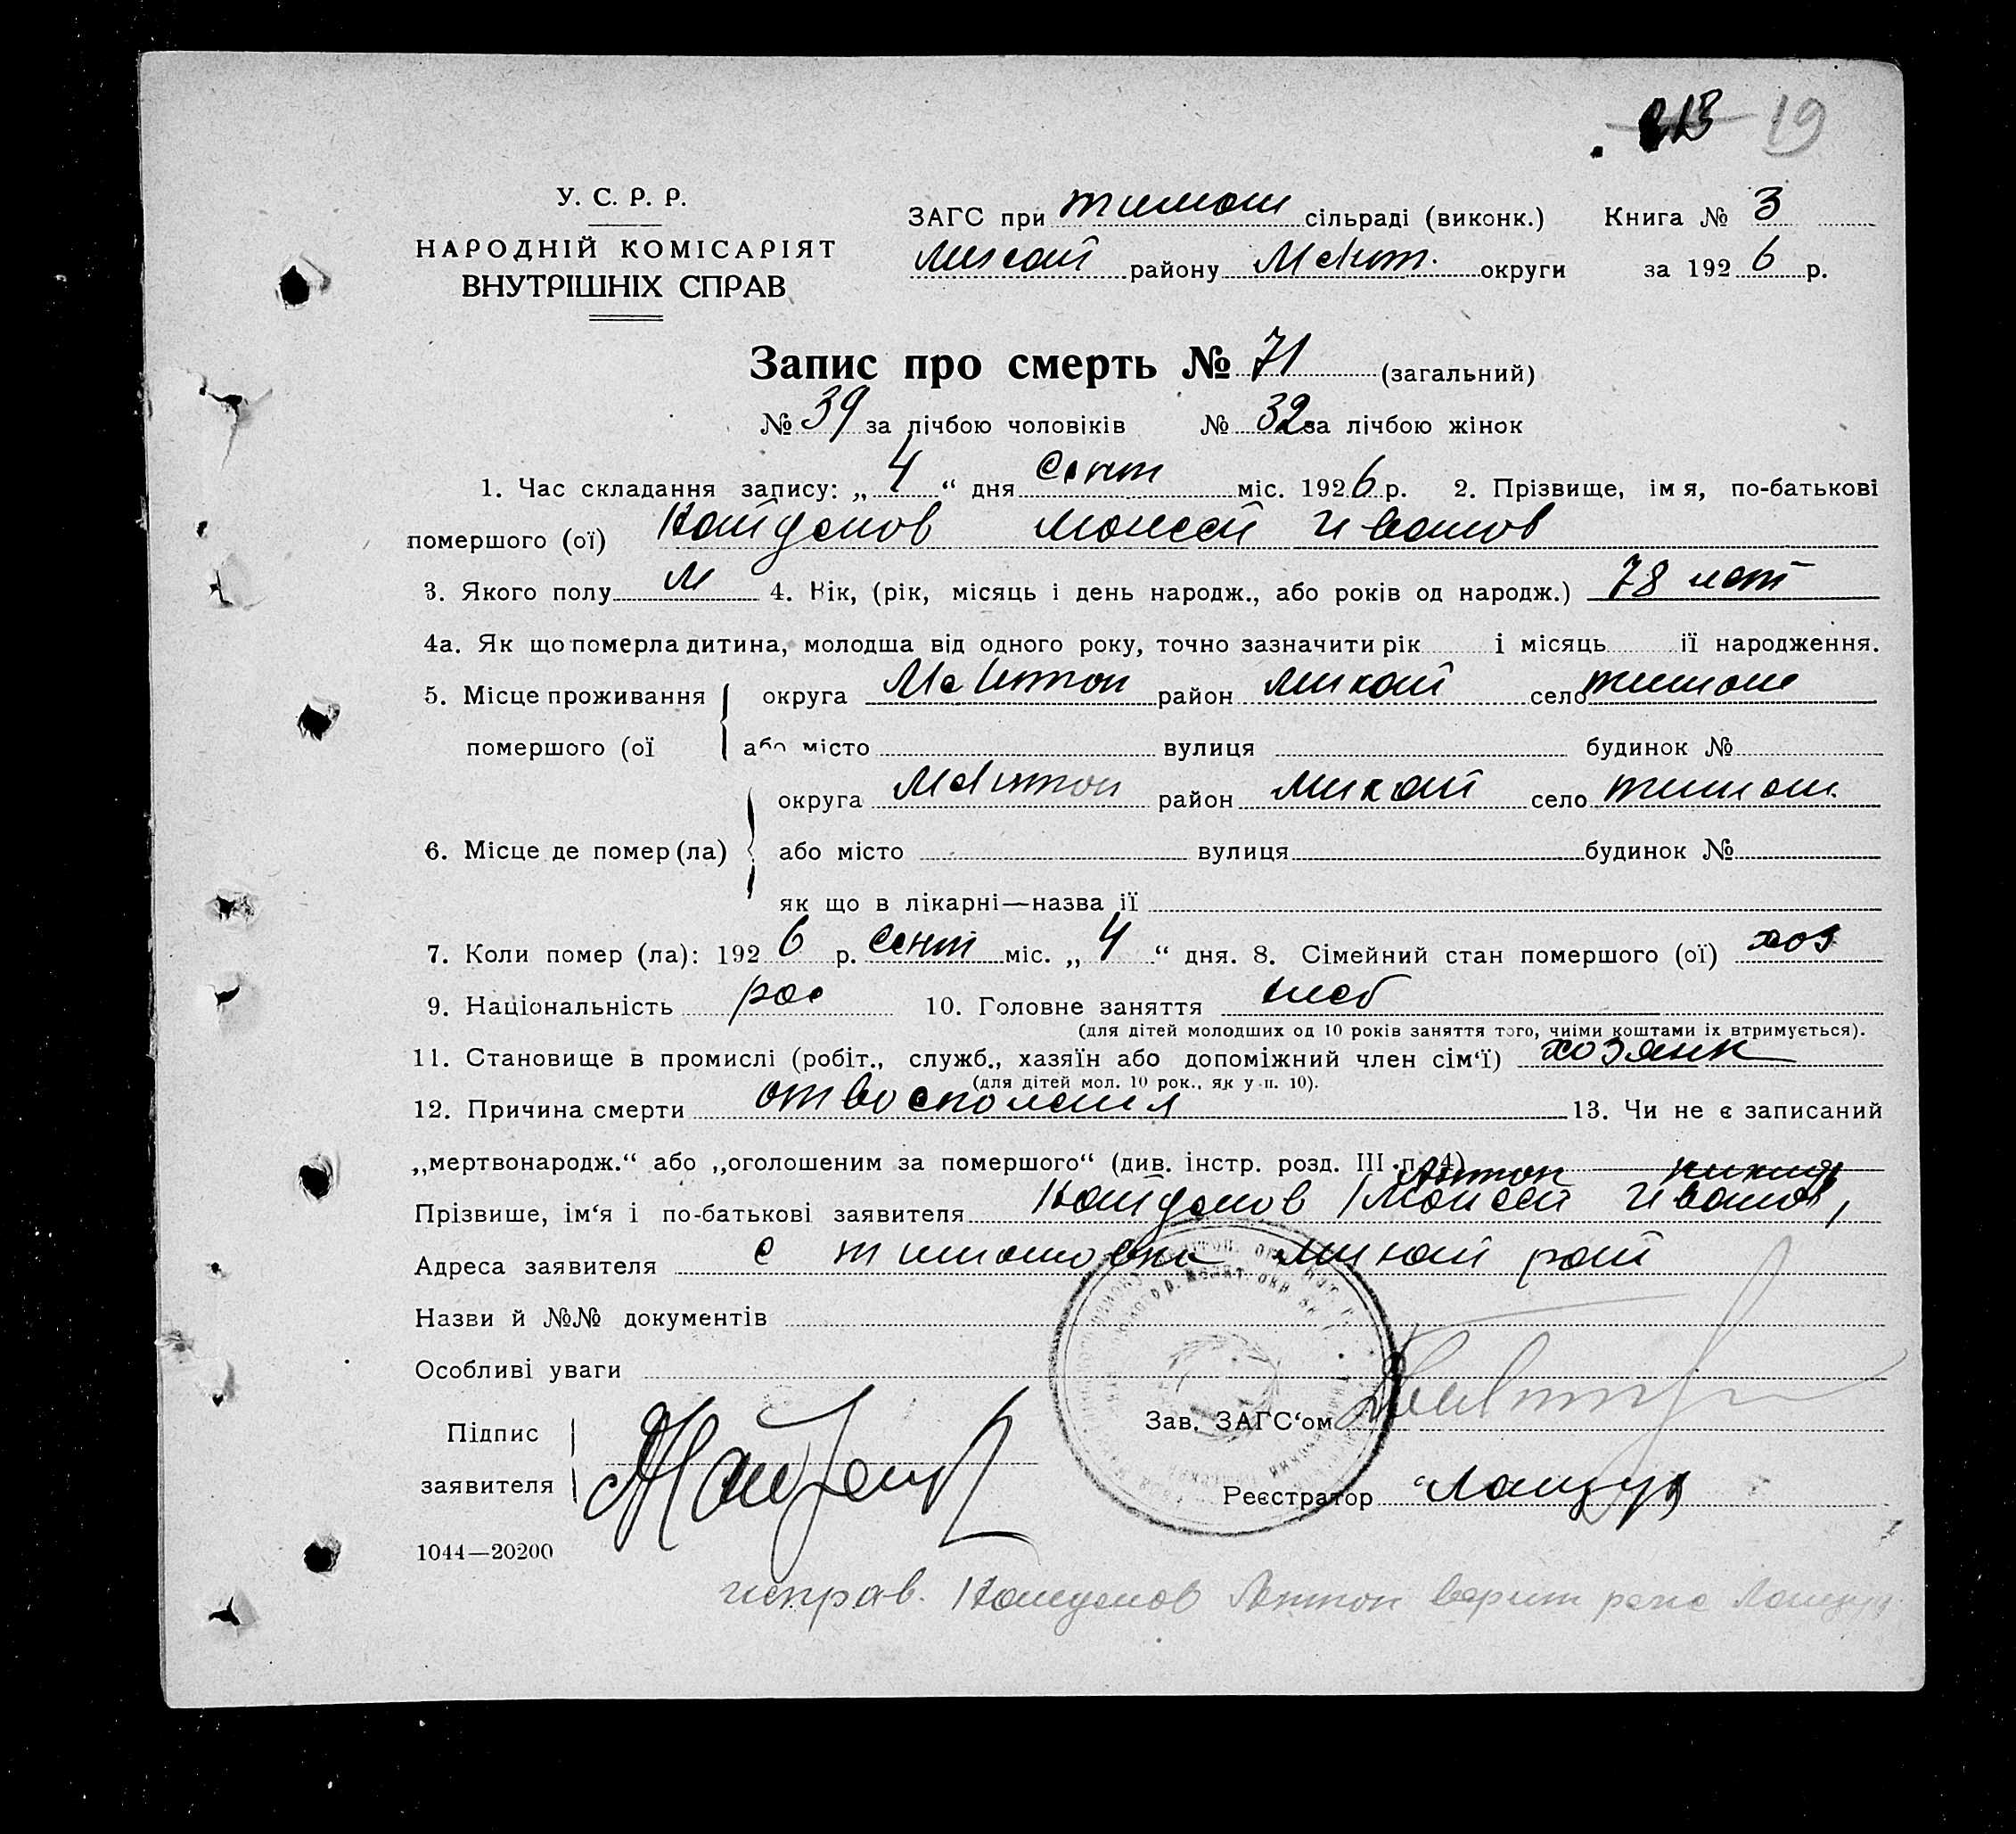 19
У. С. Р. Р.
НАРОДНІЙ КОМІСАРІЯТ
ВНУТРІШНІХ СПРАВ
ЗАГС при тимош сільраді (виконк.) Книга № 3
району округи за 1926 р.
Запис про смерть № 71 (загальний)
№ 39 за лічбою чоловіків № 32 за лічбою жінок
1. Час складання запису: „4“ дня сент міс. 1926 р. 2. Прізвище, імя, по-батькові
помершого (ої) Кайданов Моисей Иванов
3. Якого полу М 4. Вік, (рік, місяць і день народж., або років од народж.) 78 лет
4а. Як що померла дитина, молодша від одного року, точно зазначити рік і місяць її народження.
5. Місце проживання округа Мелитоп район михай село тимош
помершого (ої або місто вулиця будинок №
округа Мелитоп район михай село тимош.
6. Місце де помер (ла) або місто вулиця будинок №
як що в лікарні—назва її
7. Коли помер (ла): 1926 р. сент міс. „4“ дня. 8. Сімейний стан помершого (ої)
9. Національність рос 10. Головне заняття хлеб
(для дітей молодших од 10 років заняття того, чиїми коштами їх втримується).
11. Становище в промислі (робіт., служб., хазяїн або допоміжний член сім‘ї) хозяин
(для дітей мол. 10 рок., як у п. 10).
12. Причина смерти от воспаления 13. Чи не є записаний
„мертвонародж.“ або „оголошеним за помершого“ (див. інстр. розд. III п. 4)
Антон
Прізвише, ім‘я і по-батькові заявителя Кайданов Моисей Иванов,
Адреса заявителя с тимошовка михай рай
Назви й №№ документів
Особливі уваги
Підпис
заявителя
Зав. ЗАГС‘ом
Реєстратор
1044—20200
исправ. Кайданов Антон верит